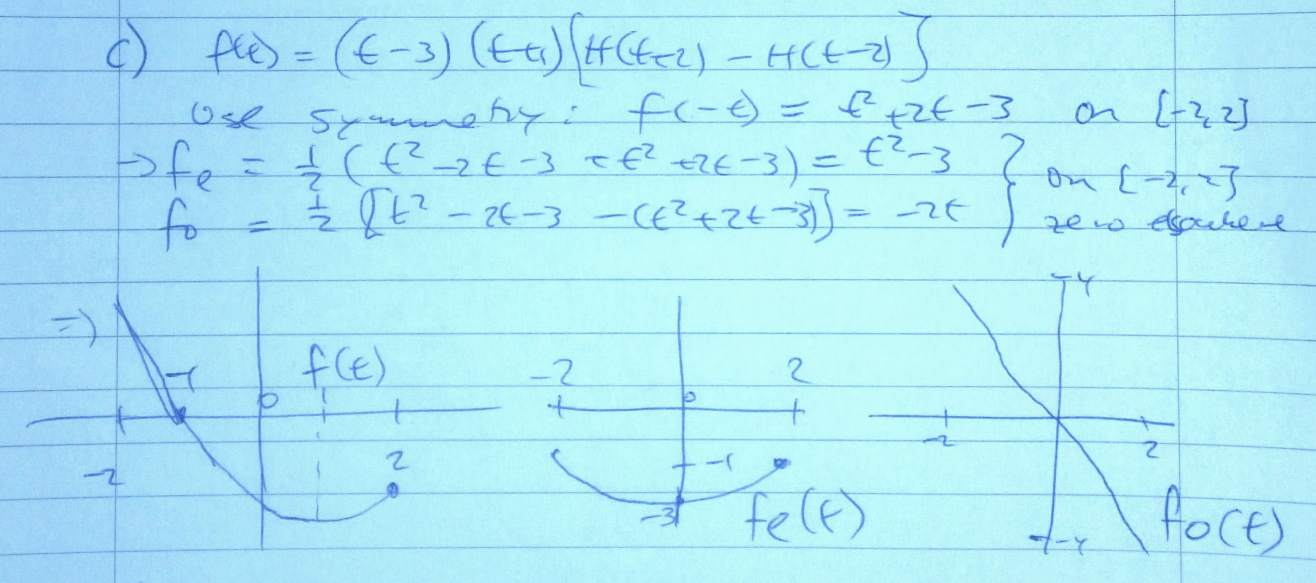 c) f(t) = (t-3)(t+1)[H(t+2) - H(t-2)]
Use symmetry: f(-t) = t² +2t -3 on [-2,2]
→ fe = ½ (t² -2t -3 + t² +2t -3) = t² -3 } on [-2,2]
fo = ½ [t² - 2t -3 - (t² +2t -3)] = -2t } zero elsewhere
⇒) -1 0 f(t) 1 -2 2
-2 0 2 -1 -3 fe(t)
-4 -2 2 -4 fo(t)